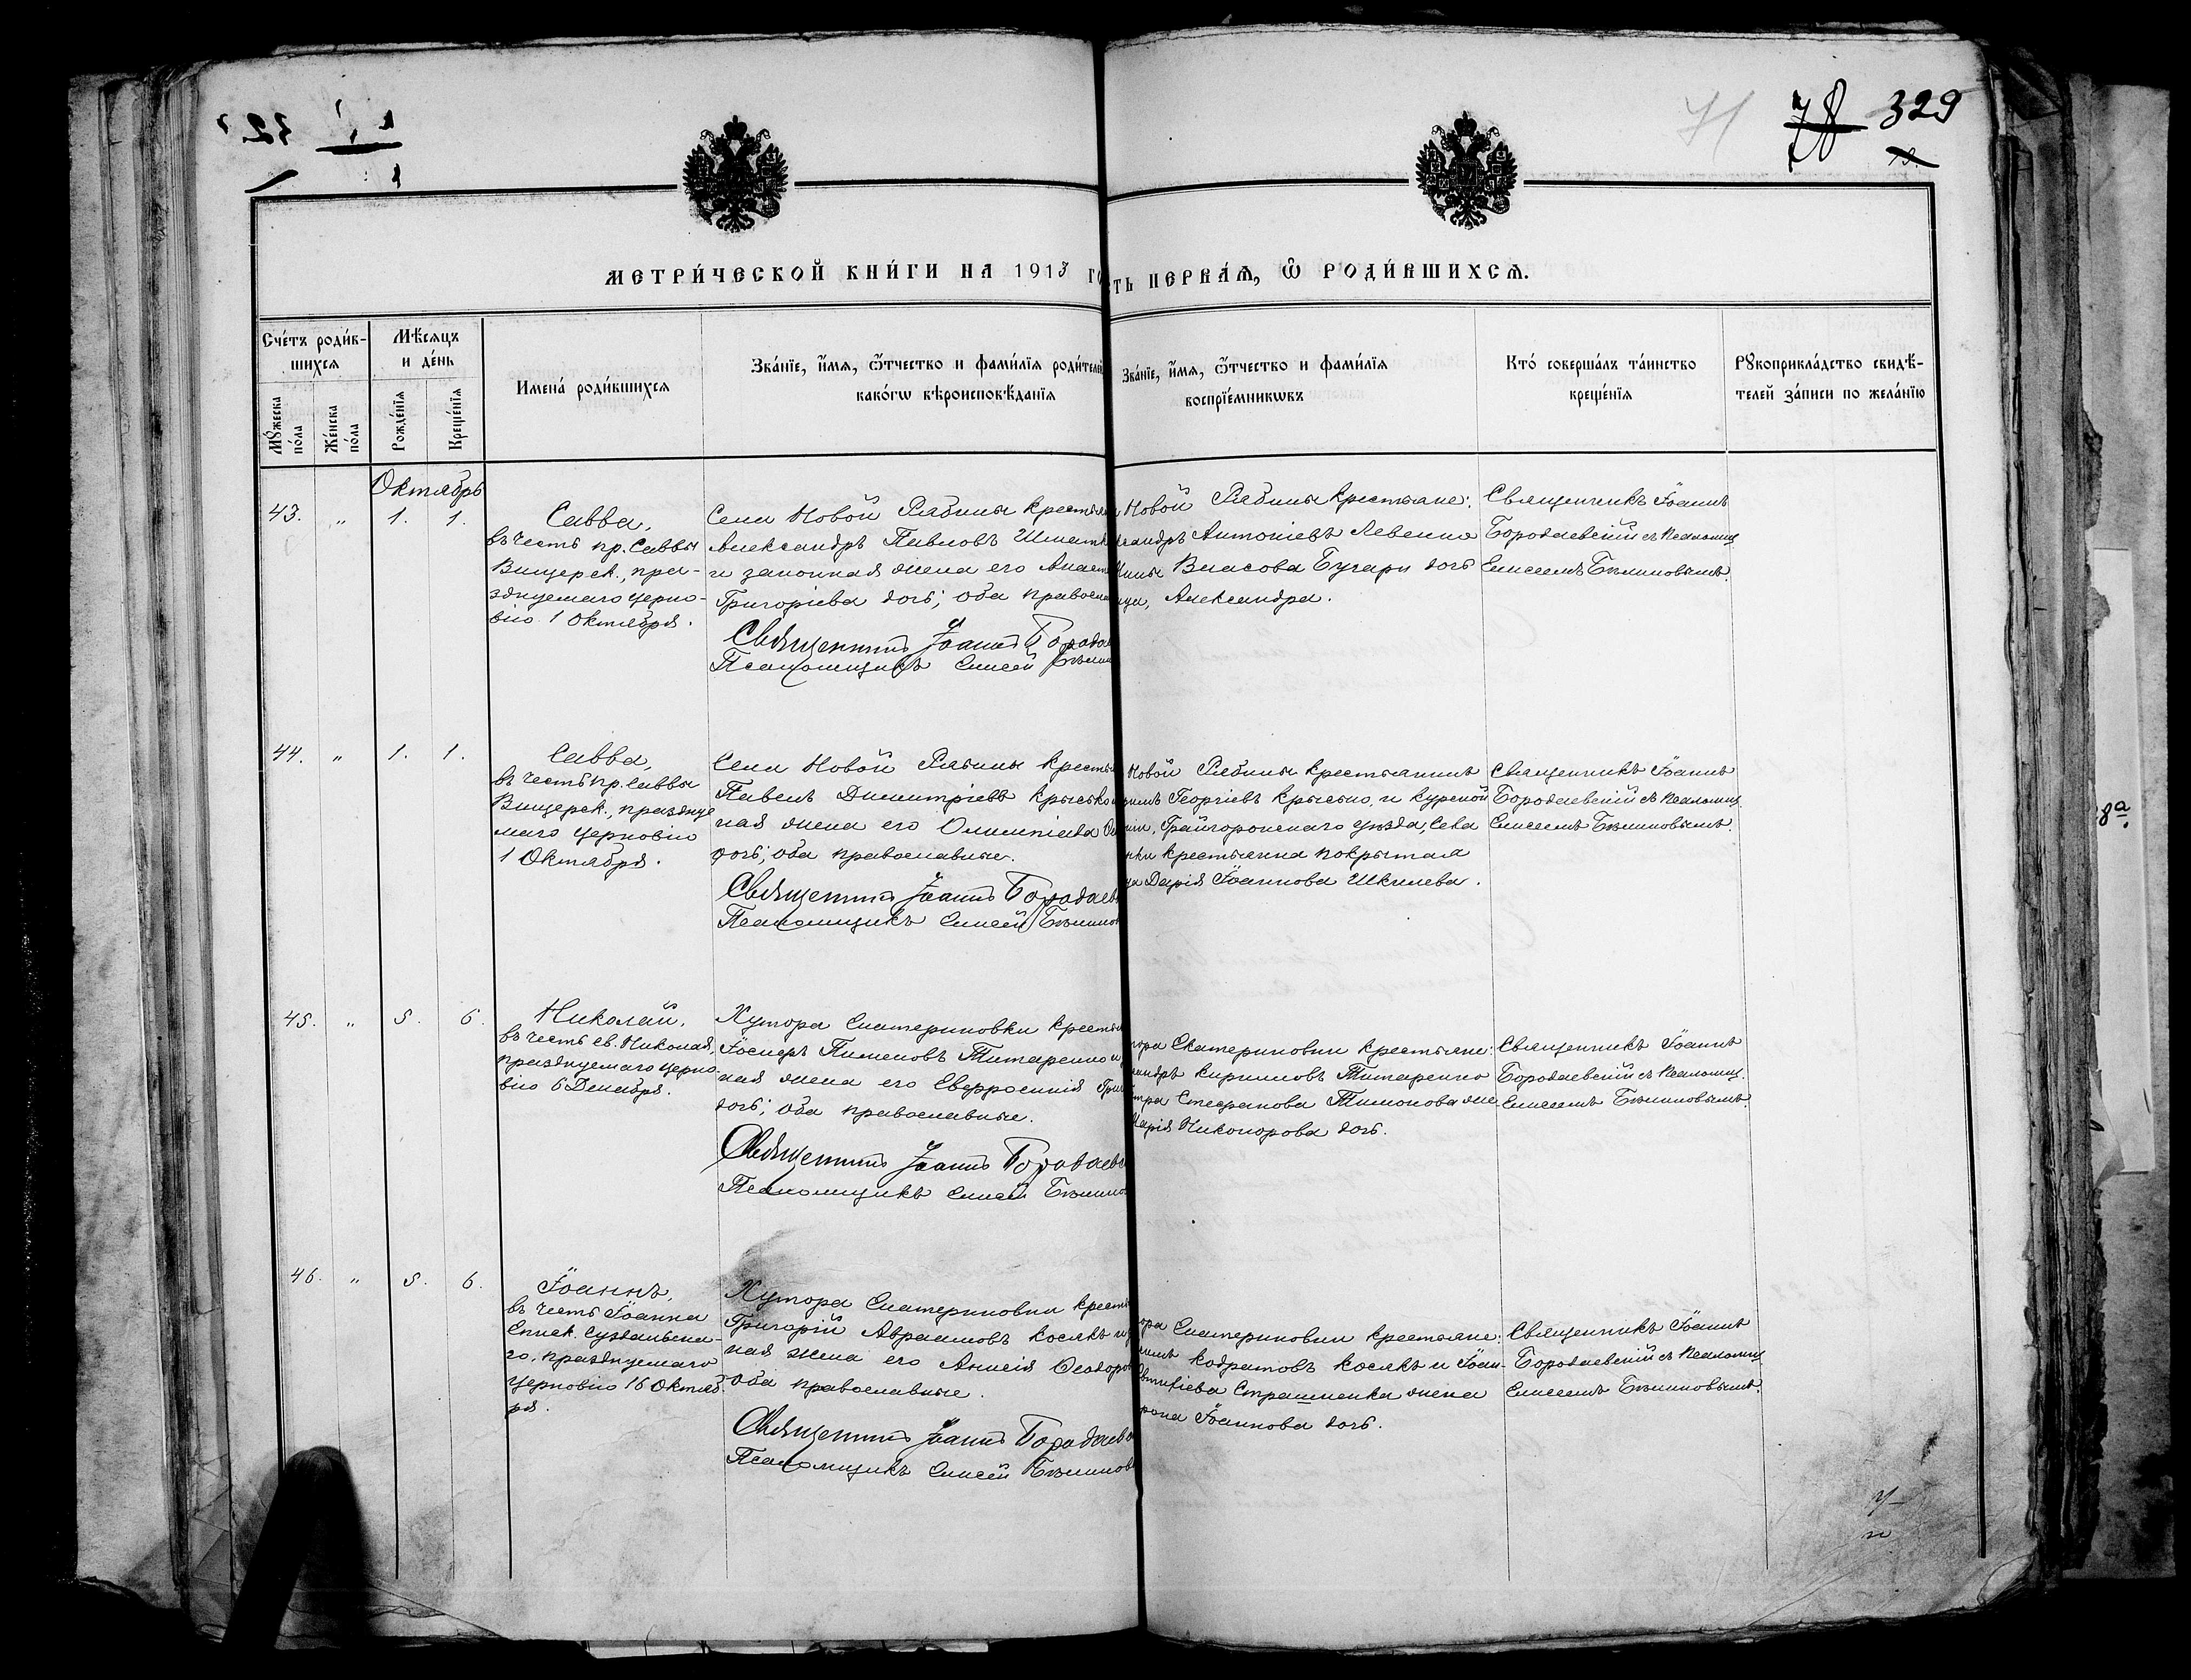 329
78
71
МЕТРИ́ЧЕСКОЙ КНИ́ГИ НА 1913 ГО
ТЬ ПЕРВА́Ѧ, Ѡ҆ РОДИ́ВШИХСѦ.
Сче́тъ роди́в-
шихсѧ
Мѣ́сѧцъ
и де́нь
Мꙋ́жеска
по́ла
Же́нска
по́ла
Рожде́нїѧ
Креще́нїѧ
Имена̀ роди́вшихсѧ
Зва́нїе, и҆́мѧ, ѻ҆́тчество и фами́лїѧ роди́телей
како́гѡ вѣроисповѣ́данїѧ
Зва́нїе, и҆́мѧ, ѻ҆́тчество и фами́лїѧ
воспрїе́мникѡвъ
Кто̀ соверша́лъ та́инство
креще́нїѧ
Рꙋкоприкла́дство свидѣ́-
телей за́писи по жела́нїю
Октябрь
43. " 1. 1.
Савва,
въ честь пр. Саввы
Вишерск., пра-
зднуемаго церко-
вію 1 Октября.
Села Новой Рябины крестья
Александръ Павловъ Шмат
и законная жена его Анаст
Григоріева дочь; оба правосла
Священникъ Іоаннъ Бородае
Псаломщикъ Елисей Бѣли
Новой Рябины крестьяне:
сандръ Антоніевъ Левенко
Власова Бугари дочь
ица, Александра.
Священникъ Іоаннъ
Бородаевскій съ псаломщ.
Елисеемъ Бѣлиновымъ.
44. " 1. 1.
Савва,
въ честь пр. Саввы
Вишерск., праздну
маго церковію
1 Октября.
Села Новой Рябины кресть
Павелъ Димитріевъ Крысько
ная жена его Олимпіада
дочь; оба православные.
Священникъ Іоаннъ Бородаев
Псаломщикъ Елисей Бѣлинов
Новой Рябины крестьянинъ
Георгіевъ Крысько, и Курской
ніи, Грайворонскаго уѣзда, села
крестьянка Покрытая
ца Дарія Іоаннова Шкилева.
Священникъ Іоаннъ
Бородаевскій съ псаломщ.
Елисеемъ Бѣлиновымъ.
45. " 5. 6.
Николай,
въ честь св. Николая,
празднуемаго церко-
вію 6 Декабря.
Хутора Екатериновки крестья
Іосифъ Пименовъ Титаренко и
ная жена его Евфросинія Гри
дочь; оба православные.
Священникъ Іоаннъ Бородаев
Псаломщикъ Елисей Бѣлино
тора Екатериновки крестьяне:
сандръ Кирилловъ Титаренко
Стефанова Тимонова же-
Марія Никонорова дочь.
Священникъ Іоаннъ
Бородаевскій съ псаломщ.
Елисеемъ Бѣлиновымъ.
46. " 5. 6.
Іоаннъ,
въ честь Іоанна
Еписк. Суздальска-
го, празднуемаго
церковію 15 Октяб-
ря.
Хутора Екатериновки кресть
Григорій Авраамовъ Косякъ и
ная жена его Анисія Ѳеодоро
оба православные.
Священникъ Іоаннъ Бородаев
Псаломщикъ Елисей Бѣлинов
ора Екатериновки крестьяне:
Кодратовъ Косякъ и Іоан-
Страшненка жена
Іоаннова дочь.
Священникъ Іоаннъ
Бородаевскій съ псаломщ.
Елисеемъ Бѣлиновымъ.